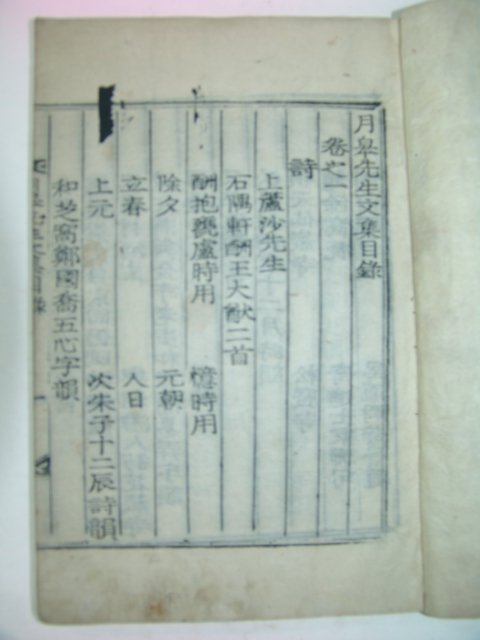 月皐先生文集目錄
卷之一
詩
上蘆沙先生
石隅軒酬王大猷二首
酬抱甕盧時用 憶時用
除夕 元朝
立春 人日
上元 次朱子十二辰詩韻
和芝窩鄭國喬五心字韻